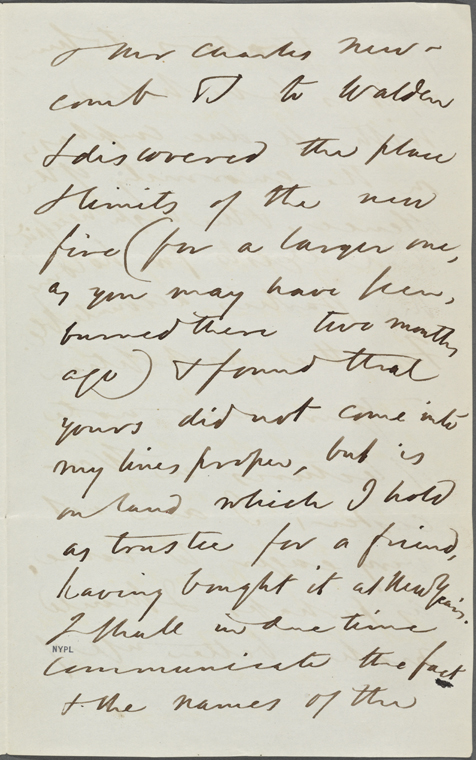 & Mr. Charles New-
comb & I to Walden
& discovered the place
& limits of the new
fire (for a larger one,
as you may have seen,
burned there two months
ago) & found that
yours did not come into
my lines proper, but is
on land which I hold
as trustee for a friend,
having bought it at New Year's.
I shall in due time
NYPL
communicate the fact
& the names of the